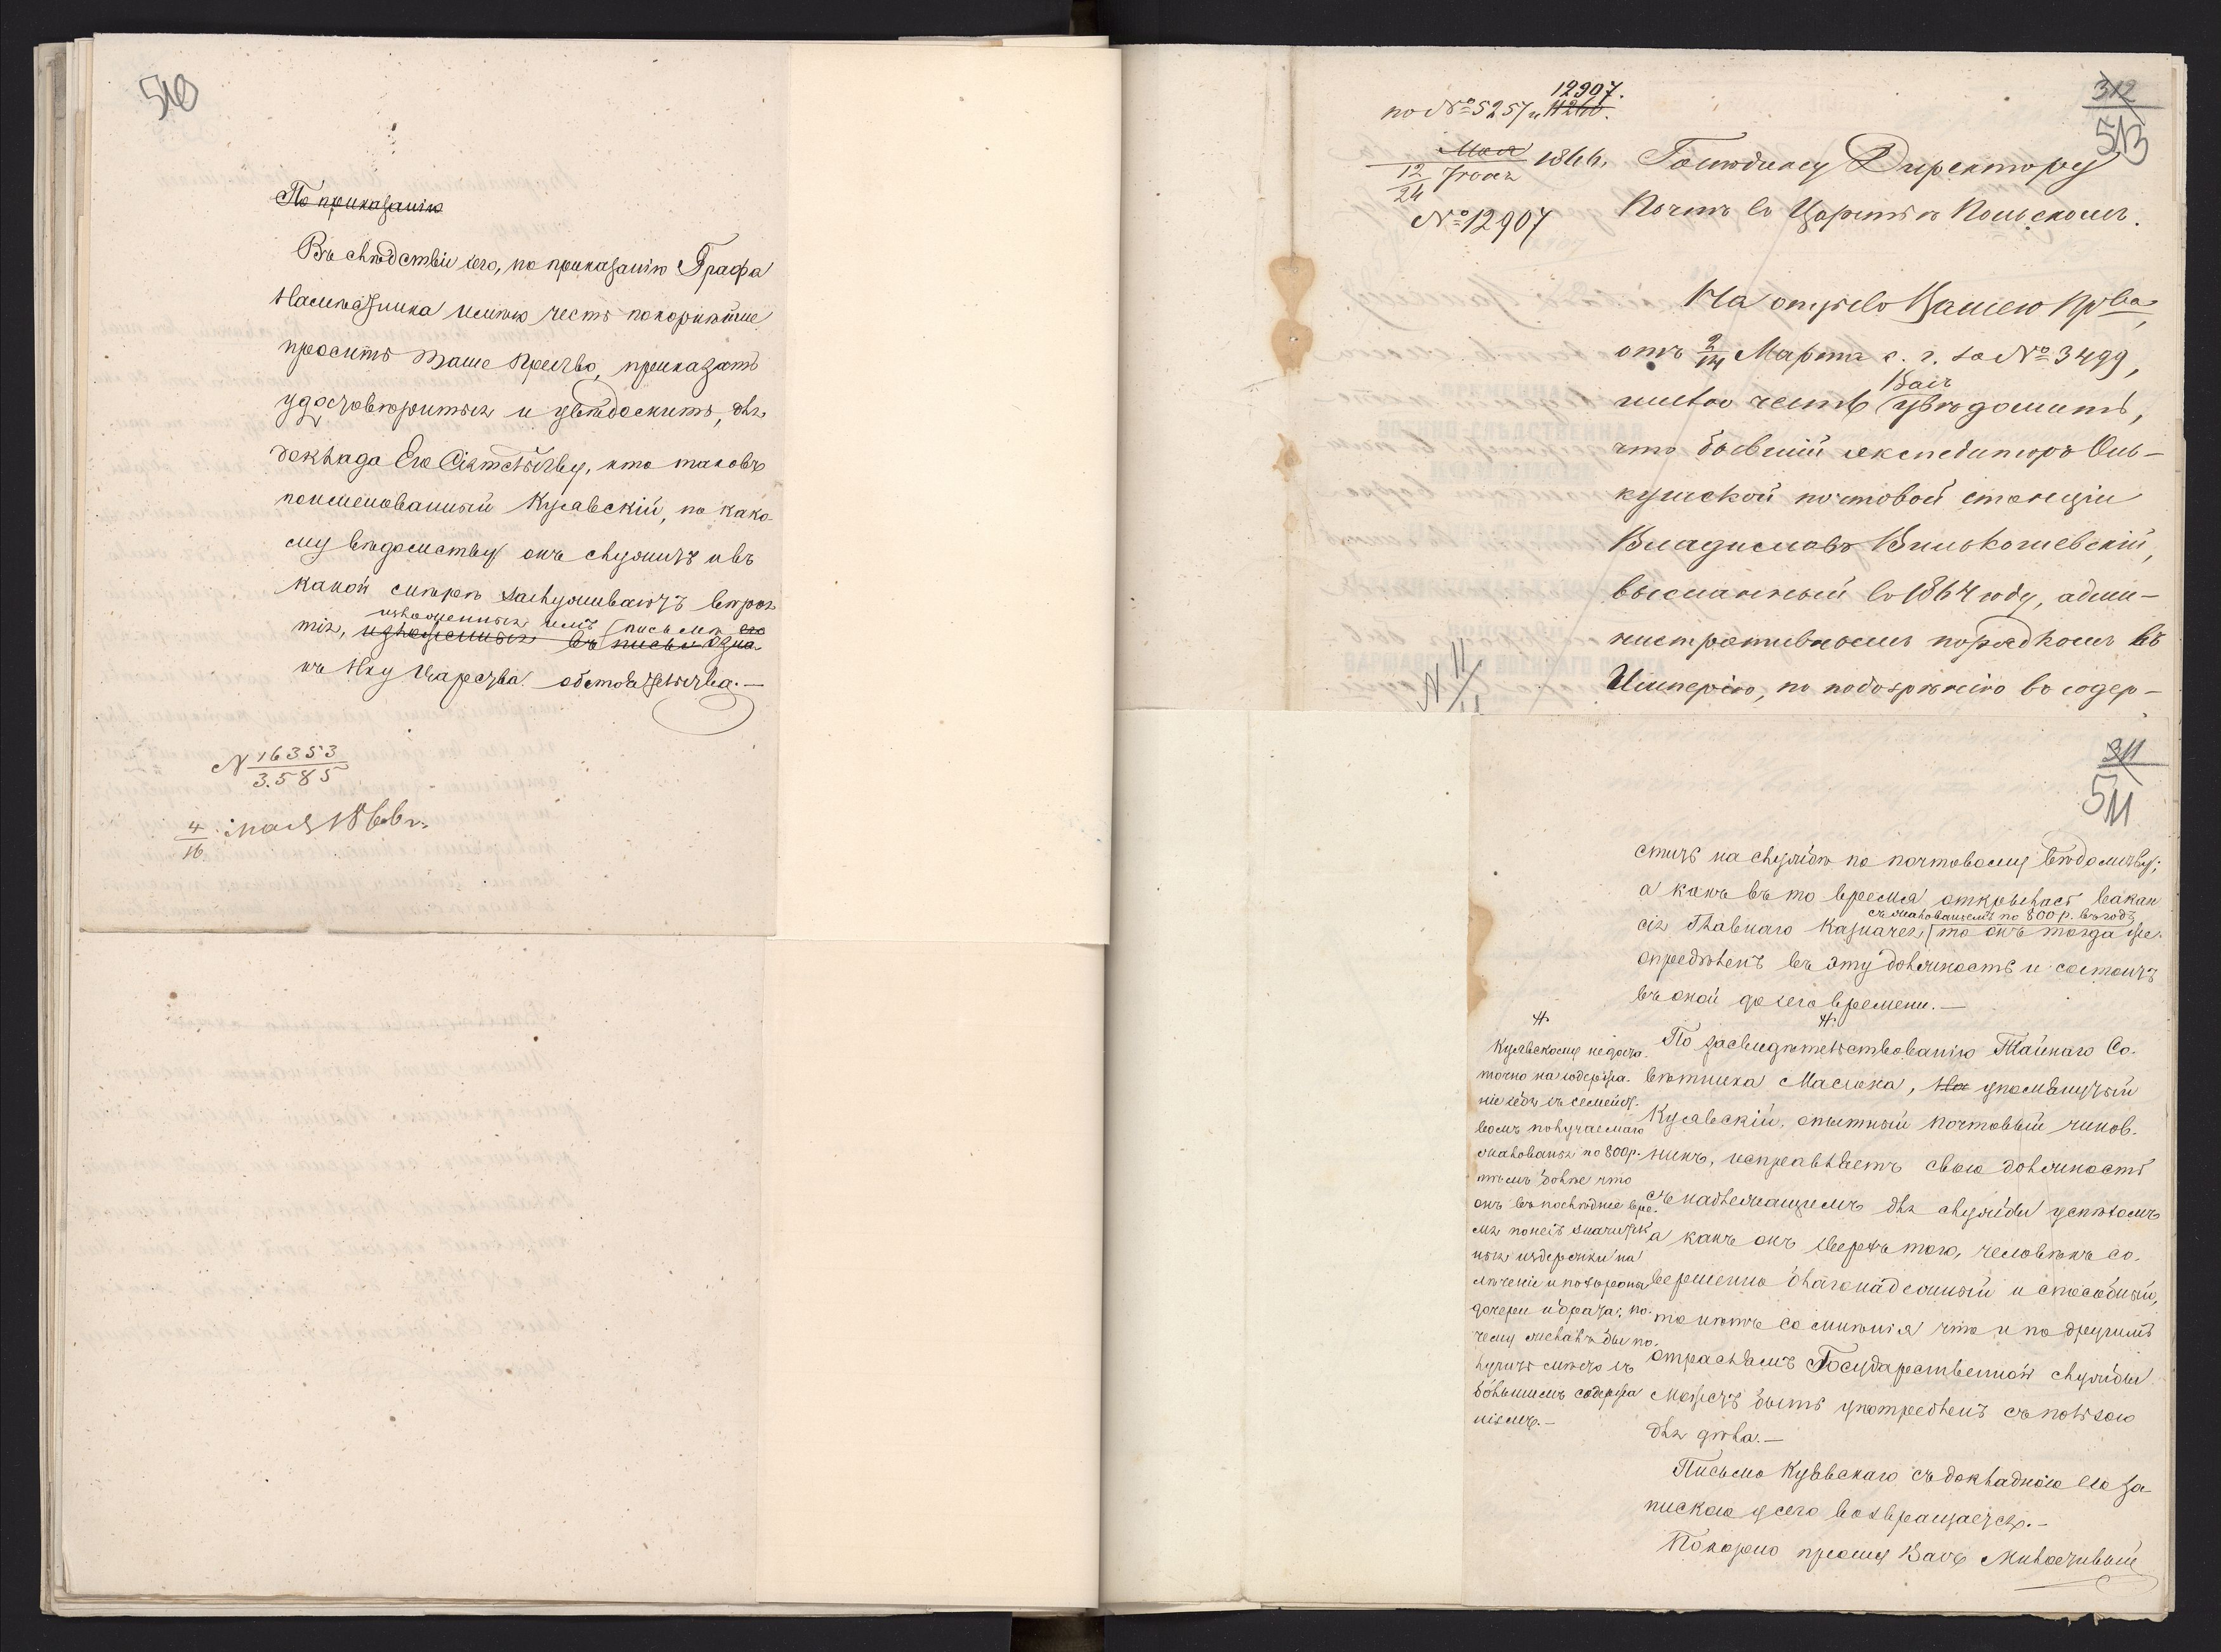 510
По приказанію
Въ слѣдствіи сего, по приказанію Графа
Намѣстника имѣю честь покорнѣйше
просить Ваше Прев-ство, приказать
удостовѣриться и увѣдомить, для
доклада Его Сіятельству, кто таковъ
поименованный Куявскій, по како-
му вѣдомству онъ служитъ и въ
какой степени заслуживаютъ вѣроя-
изложенныя имъ письмѣ его
тія, изложенныя въ письмѣ
къ Нку Царства обстоятельства.—
N 16353
3.585
4/16 мая 1866 г.
12907.
по № 5257 и 11260.
312
513
Мая
12/24 Іюня 1866. Господину Директору
№ 12907 Почтъ въ Царствѣ Польскомъ.
На отзывъ Вашего Пр-ва,
отъ 2/14 Марта с. г. за № 3499,
Васъ
имѣю честь увѣдомить,
что бывшій экспедиторъ Оль-
кушской почтовой станціи
Владиславъ Вильконевскій,
высланный въ 1864 году, адми-
нистративнымъ порядкомъ въ
Имперію, по подозрѣнію въ содер-
311
511
стить на службѣ по почтовому вѣдомству;
а какъ въ то время открылась вакан
съ жалованьемъ по 800 р. въ годъ
сія Главнаго Казначея, то онъ тогда же
опредѣленъ въ эту должность и состоитъ
въ оной до сего времени.—
По засвидѣтельствованію Тайнаго Со-
вѣтника Масюка, упомянутый
Куявскій, опытный почтовый чинов-
никъ, исправляетъ свою должность
съ надлежащимъ для службы успѣхомъ
а какъ онъ сверхъ того, человѣкъ со-
вершенно благонадежный и способный,
то нѣтъ сомнѣнія что и по другимъ
отраслямъ Государственной службы
можетъ быть употребленъ съ пользою
для дѣла.—
Куявскому недоста-
точно на содержа-
ніе себя съ семейст-
вомъ получаемаго
жалованья по 800 р.
тѣмъ болѣе что
онъ въ послѣднее вре-
мя понесъ значитель-
ныя издержки на
лѣченіе и похороны
дочери и брата; по-
чему желалъ бы по-
лучить мѣсто съ
большимъ содержа
ніемъ.—
Письмо Куявскаго съ докладною его за-
пискою у сего возвращается.—
Покорно прошу Васъ Милостивый